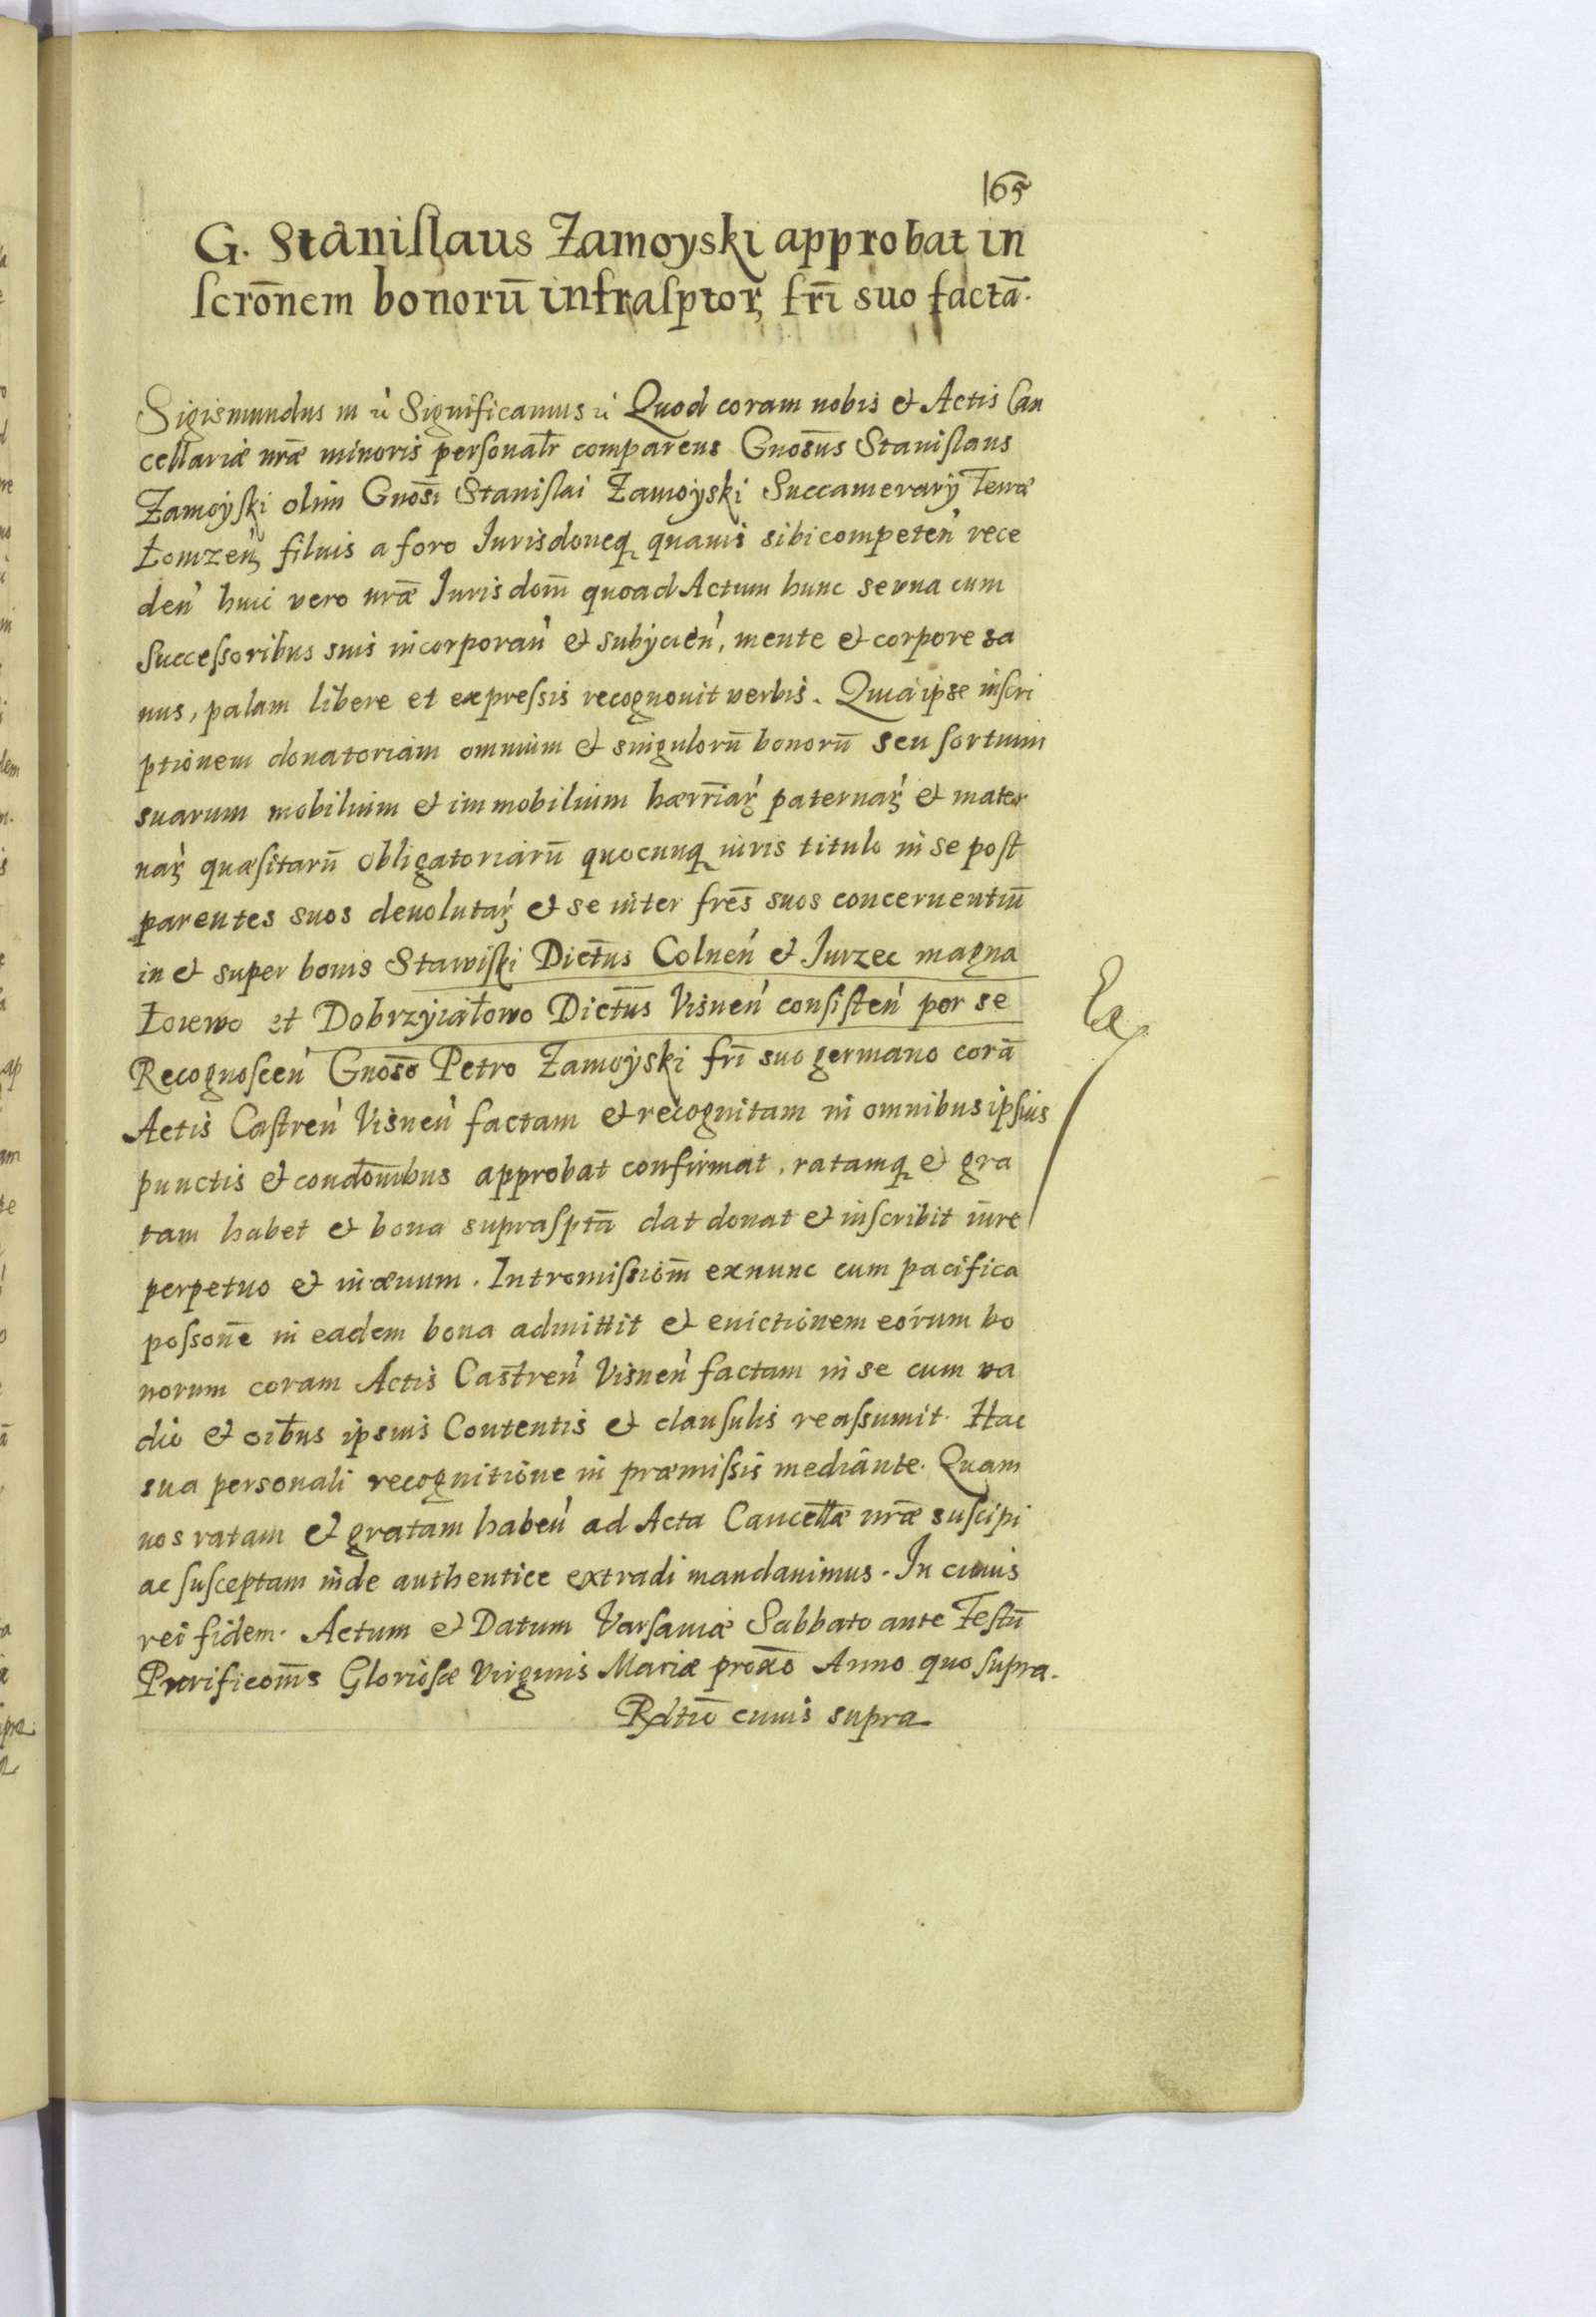 165
G. Stanislaus Zamoyski approbat in
scrōnem bonorū infrasptorꝫ frī suo factā.
Sigismundus III ꝛc Significamus ꝛc Quod coram nobis et Actis Can
cellariæ nræ minoris personalr comparens Gnosus Stanislaus
Zamoÿski olim Gnosi Stanislai Zamoÿski Succamerarÿ Terræ
Łomzen̄ filius a foro Jurisdoneqꝫ quamis sibi competen̄ rece
den̄ huic vero nræ Jurisdom̄ quoad Actum hunc se una cum
Successoribus suis incorporan̄ et subÿcien̄, mente et corpore sa
nus, palam libere et expressis recognouit verbis. Quia ipse inscri
ptionem donatoriam omnium et singulorū bonorū seu sortium
suarum mobilium et immobilium hærriarꝫ paternarꝫ et mater
narꝫ quæsitarū obligatoriarū quocunqꝫ iuris titulo in se post
parentes suos deuolutarꝫ et se inter frēs suos concernentiū
in et super bonis Stawiski Dictus Colnen̄ et Jurzec magna
Łoiewo et Dobrzÿiałowo Dictus Visnen̄ consisten̄ per se
Recognoscen̄ Gnoso Petro Zamoÿski frī suo germano corā
Actis Castren̄ Visnen̄ factam et recognitam in omnibus ipsius
punctis et condonibus approbat confirmat, ratamqꝫ et gra
tam habet et bona suprasptā dat donat et inscribit iure
perpetuo et in æuum. Intromissiom̄ exnunc cum pacifica
possonē in eadem bona admittit et euictionem eorum bo
norum coram Actis Castren̄ Visnen̄ factam in se cum va
dio et oibus ipsius Contentis et clausulis reassumit. Hac
sua personali recognitione in præmissis mediante. Quam
nos ratam et gratam haben̄ ad Acta Cancellæ nræ suscipi
ac susceptam inde authentice extradi mandauimus. In cuius
rei fidem. Actum et Datum Varsauiæ Sabbato ante Festū
Purificom̄s Gloriosæ Virginis Mariæ proxo Anno quo supra.
Rdtio cuius supra